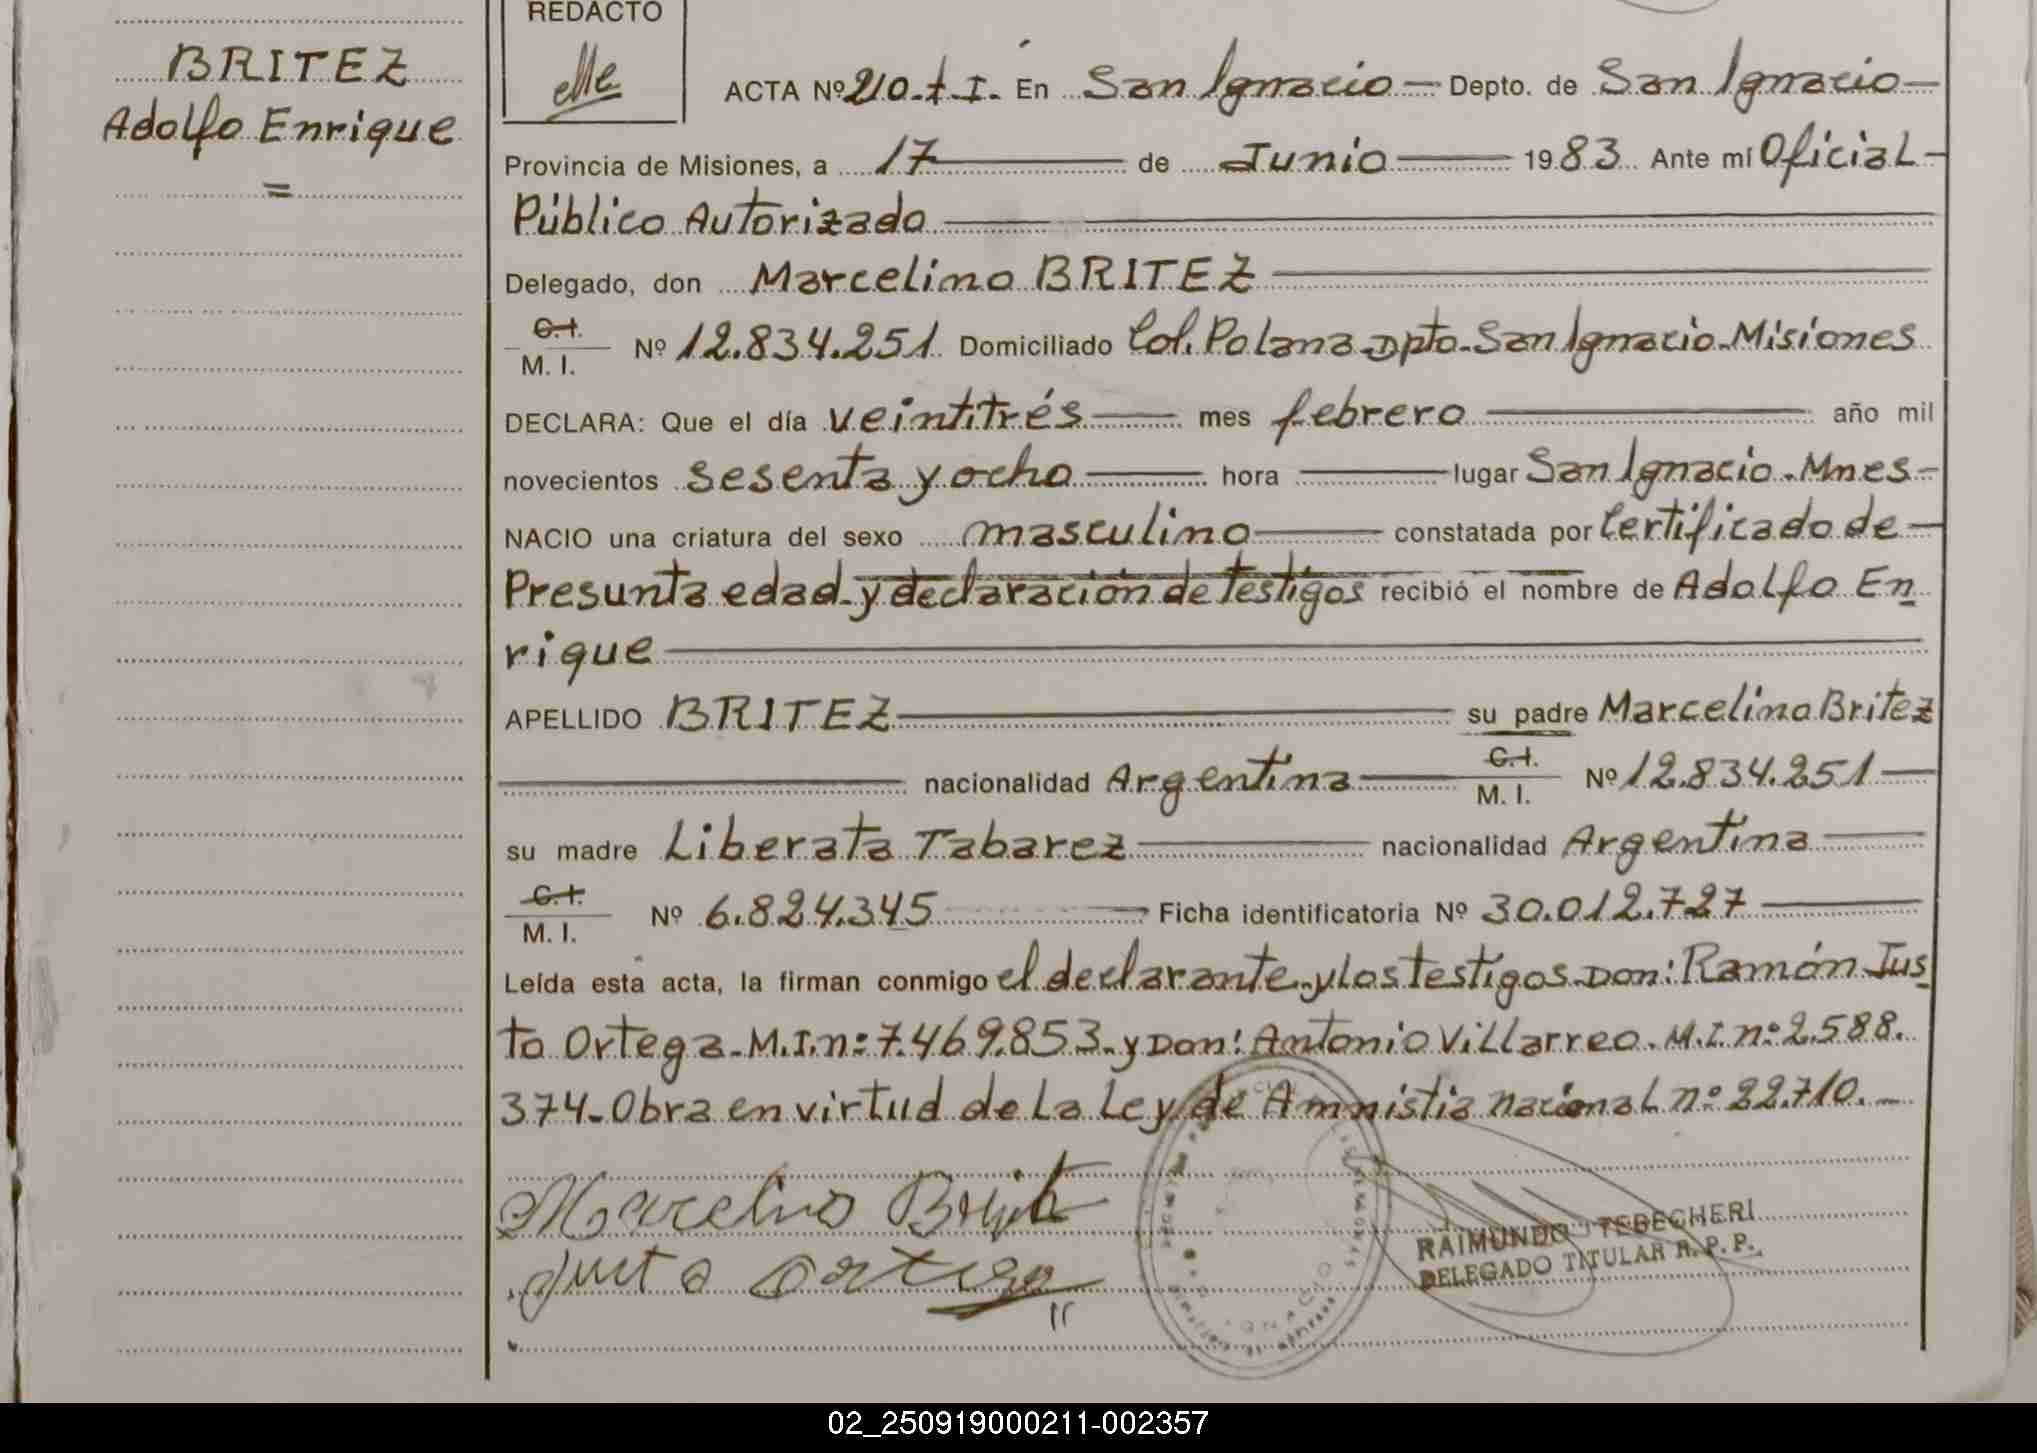 BRITEZ
Adolfo Enrique
=
REDACTO
ACTA Nº 210.t.I. En San Ignacio — Depto. de San Ignacio —
Provincia de Misiones, a 17 de Junio 1983 Ante mí Oficial
Público Autorizado
Delegado, don Marcelino BRITEZ
C.I.
M. I. Nº 12.834.251. Domiciliado Col. Polana Dpto. San Ignacio. Misiones
DECLARA: Que el día veintitrés mes febrero año mil
novecientos sesenta y ocho hora lugar San Ignacio. Mnes
NACIO una criatura del sexo masculino constatada por Certificado de
Presunta edad y declaración de testigos recibió el nombre de Adolfo En
rique
APELLIDO BRITEZ su padre Marcelino Britez
nacionalidad Argentina C.I. M. I. Nº 12.834.251
su madre Liberata Tabarez nacionalidad Argentina
C.I.
M. I. Nº 6.824.345 Ficha identificatoria Nº 30.012.727
Leída esta acta, la firman conmigo el declarante y los testigos Don: Ramón Jus
to Ortega. M.I. nº: 7.469.853. y Don: Antonio Villarreo. M.I. nº: 2.588.
374. Obra en virtud de La Ley de Amnistia nacional nº 22.710.
Marcelino Brit
Justo Ortega
RAIMUNDO I TEBECHERI
DELEGADO TITULAR R. P. P.
02_250919000211-002357